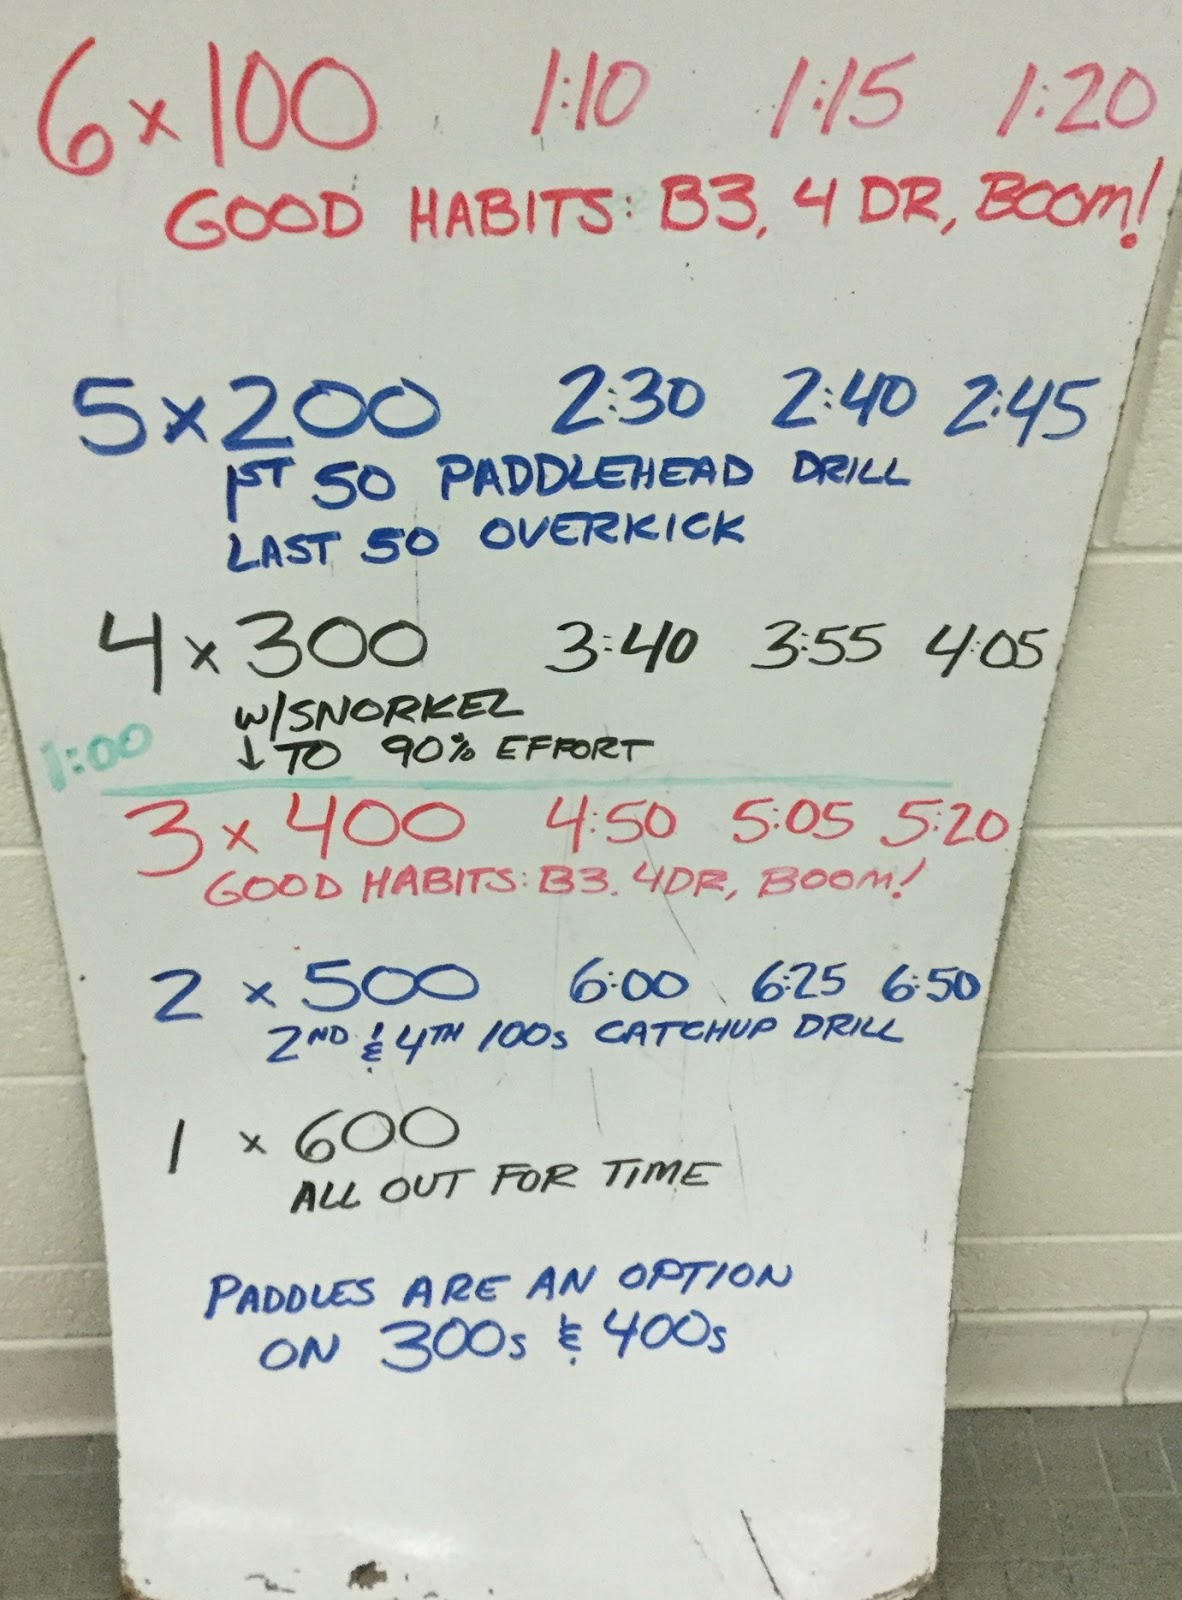 6 x 100 1:10 1:15 1:20
GOOD HABITS: B3, 4 DR, BOOM!
5 x 200 2:30 2:40 2:45
1ST 50 PADDLEHEAD DRILL
LAST 50 OVERKICK
4 x 300 3:40 3:55 4:05
W/SNORKEL
↓ TO 90% EFFORT
1:00
3 x 400 4:50 5:05 5:20
GOOD HABITS: B3, 4DR, BOOM!
2 x 500 6:00 6:25 6:50
2ND & 4TH 100s CATCHUP DRILL
1 x 600
ALL OUT FOR TIME
PADDLES ARE AN OPTION
ON 300s & 400s